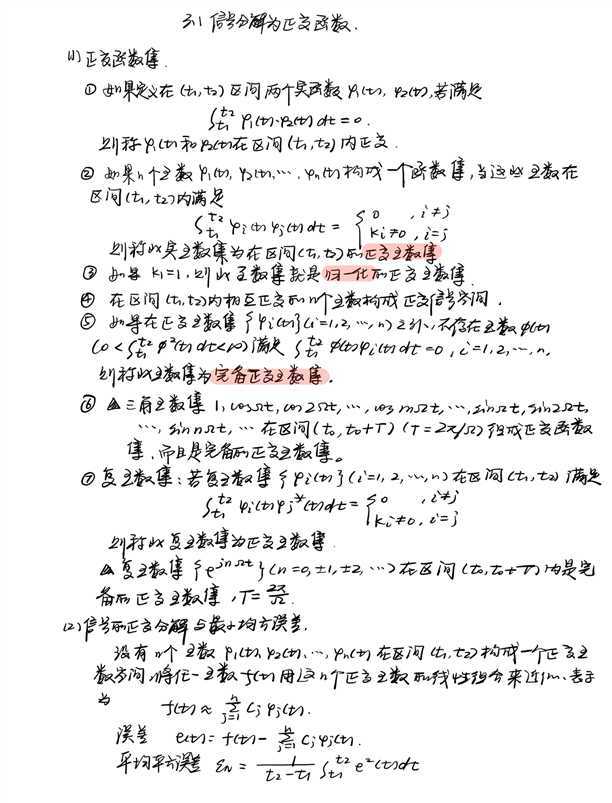 3.1 信号分解为正交函数.
(1) 正交函数集.
① 如果定义在 (t₁,t₂) 区间两个实函数 φ₁(t), φ₂(t), 若满足
∫_{t₁}^{t₂} φ₁(t)·φ₂(t) dt = 0.
则称 φ₁(t) 和 φ₂(t) 在区间 (t₁,t₂) 内正交.
② 如果 n 个函数 φ₁(t), φ₂(t), …, φₙ(t) 构成一个函数集, 当这些函数在
区间 (t₁,t₂) 内满足
∫_{t₁}^{t₂} φᵢ(t) φⱼ(t) dt = { 0 , i≠j
Kᵢ≠0 , i=j
则称此实函数集为在区间 (t₁,t₂) 的正交函数集
③ 如果 Kᵢ=1, 则此函数集就是归一化的正交函数集.
④ 在区间 (t₁,t₂) 内相互正交的 n 个函数构成正交信号空间.
⑤ 如果在正交函数集 {φᵢ(t)} (i=1,2,…,n) 之外, 不存在函数 φ(t)
(0<∫_{t₁}^{t₂} φ²(t) dt<∞) 满足 ∫_{t₁}^{t₂} φ(t) φᵢ(t) dt = 0 , i=1,2,…,n,
则称此函数集为完备正交函数集.
⑥ △ 三角函数集 1, cosΩt, cos2Ωt, …, cos mΩt, …, sinΩt, sin2Ωt,
…, sin nΩt, … 在区间 (t₀, t₀+T) (T=2π/Ω) 组成正交函数
集, 而且是完备的正交函数集。
⑦ 复函数集: 若复函数集 {φᵢ(t)} (i=1,2,…,n) 在区间 (t₁,t₂) 满足
∫_{t₁}^{t₂} φᵢ(t) φⱼ*(t) dt = { 0 , i≠j
Kᵢ≠0, i=j
则称此复函数集为正交函数集
△ 复函数集 {e^{jnΩt}} (n=0,±1,±2,…) 在区间 (t₀,t₀+T) 内是完
备的正交函数集, T=2π/Ω.
(2) 信号的正交分解与最小均方误差.
设有 n 个函数 φ₁(t), φ₂(t), …, φₙ(t) 在区间 (t₁,t₂) 构成一个正交函
数空间, 将任一函数 f(t) 用这 n 个正交函数的线性组合来近似, 表示
为 f(t) ≈ Σ_{j=1}^{n} Cⱼ φⱼ(t).
误差 e(t) = f(t) - Σ_{j=1}^{n} Cⱼ φⱼ(t).
平均平方误差 εₙ = 1/(t₂-t₁) ∫_{t₁}^{t₂} e²(t) dt